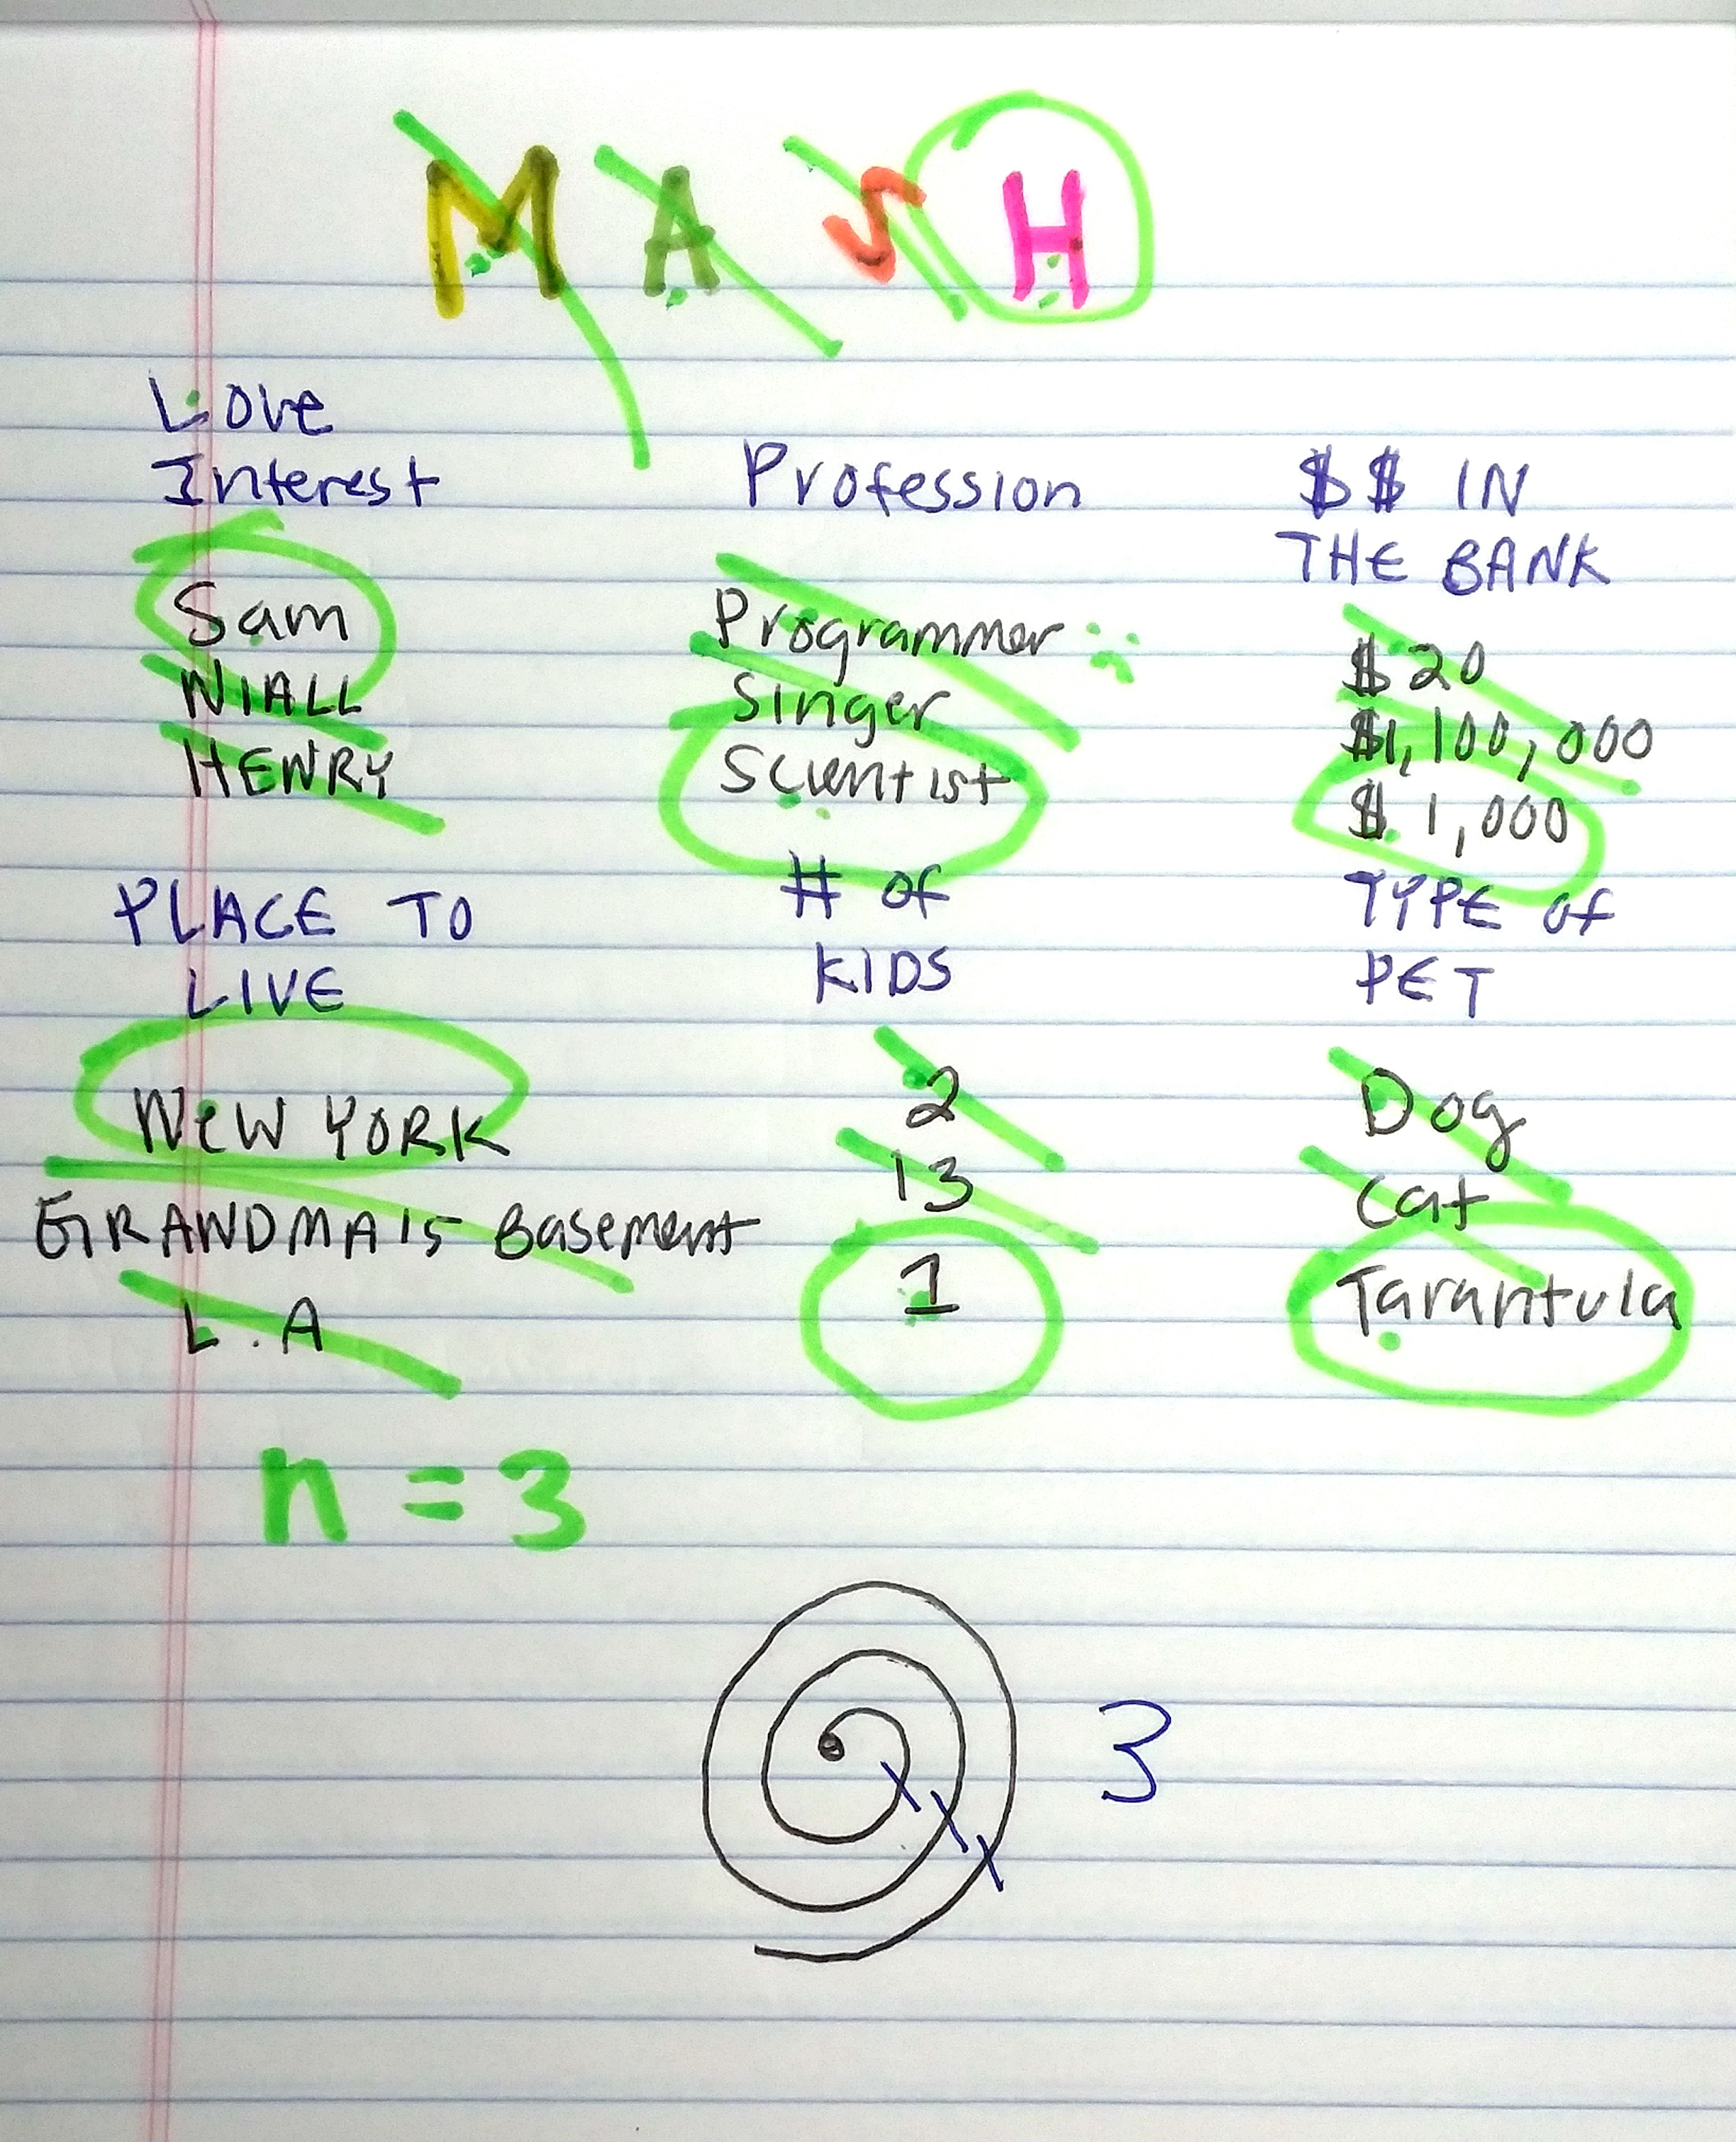 M A S H
Love
Interest
Sam
NIALL
HENRY
Profession
Programmer
Singer
Scientist
$$ IN
THE BANK
$20
$1,100,000
$1,000
PLACE TO
LIVE
NeW YORK
GRANDMA'S Basement
L.A
# of
KIDS
2
13
1
TYPE of
PET
Dog
cat
Tarantula
n = 3
3